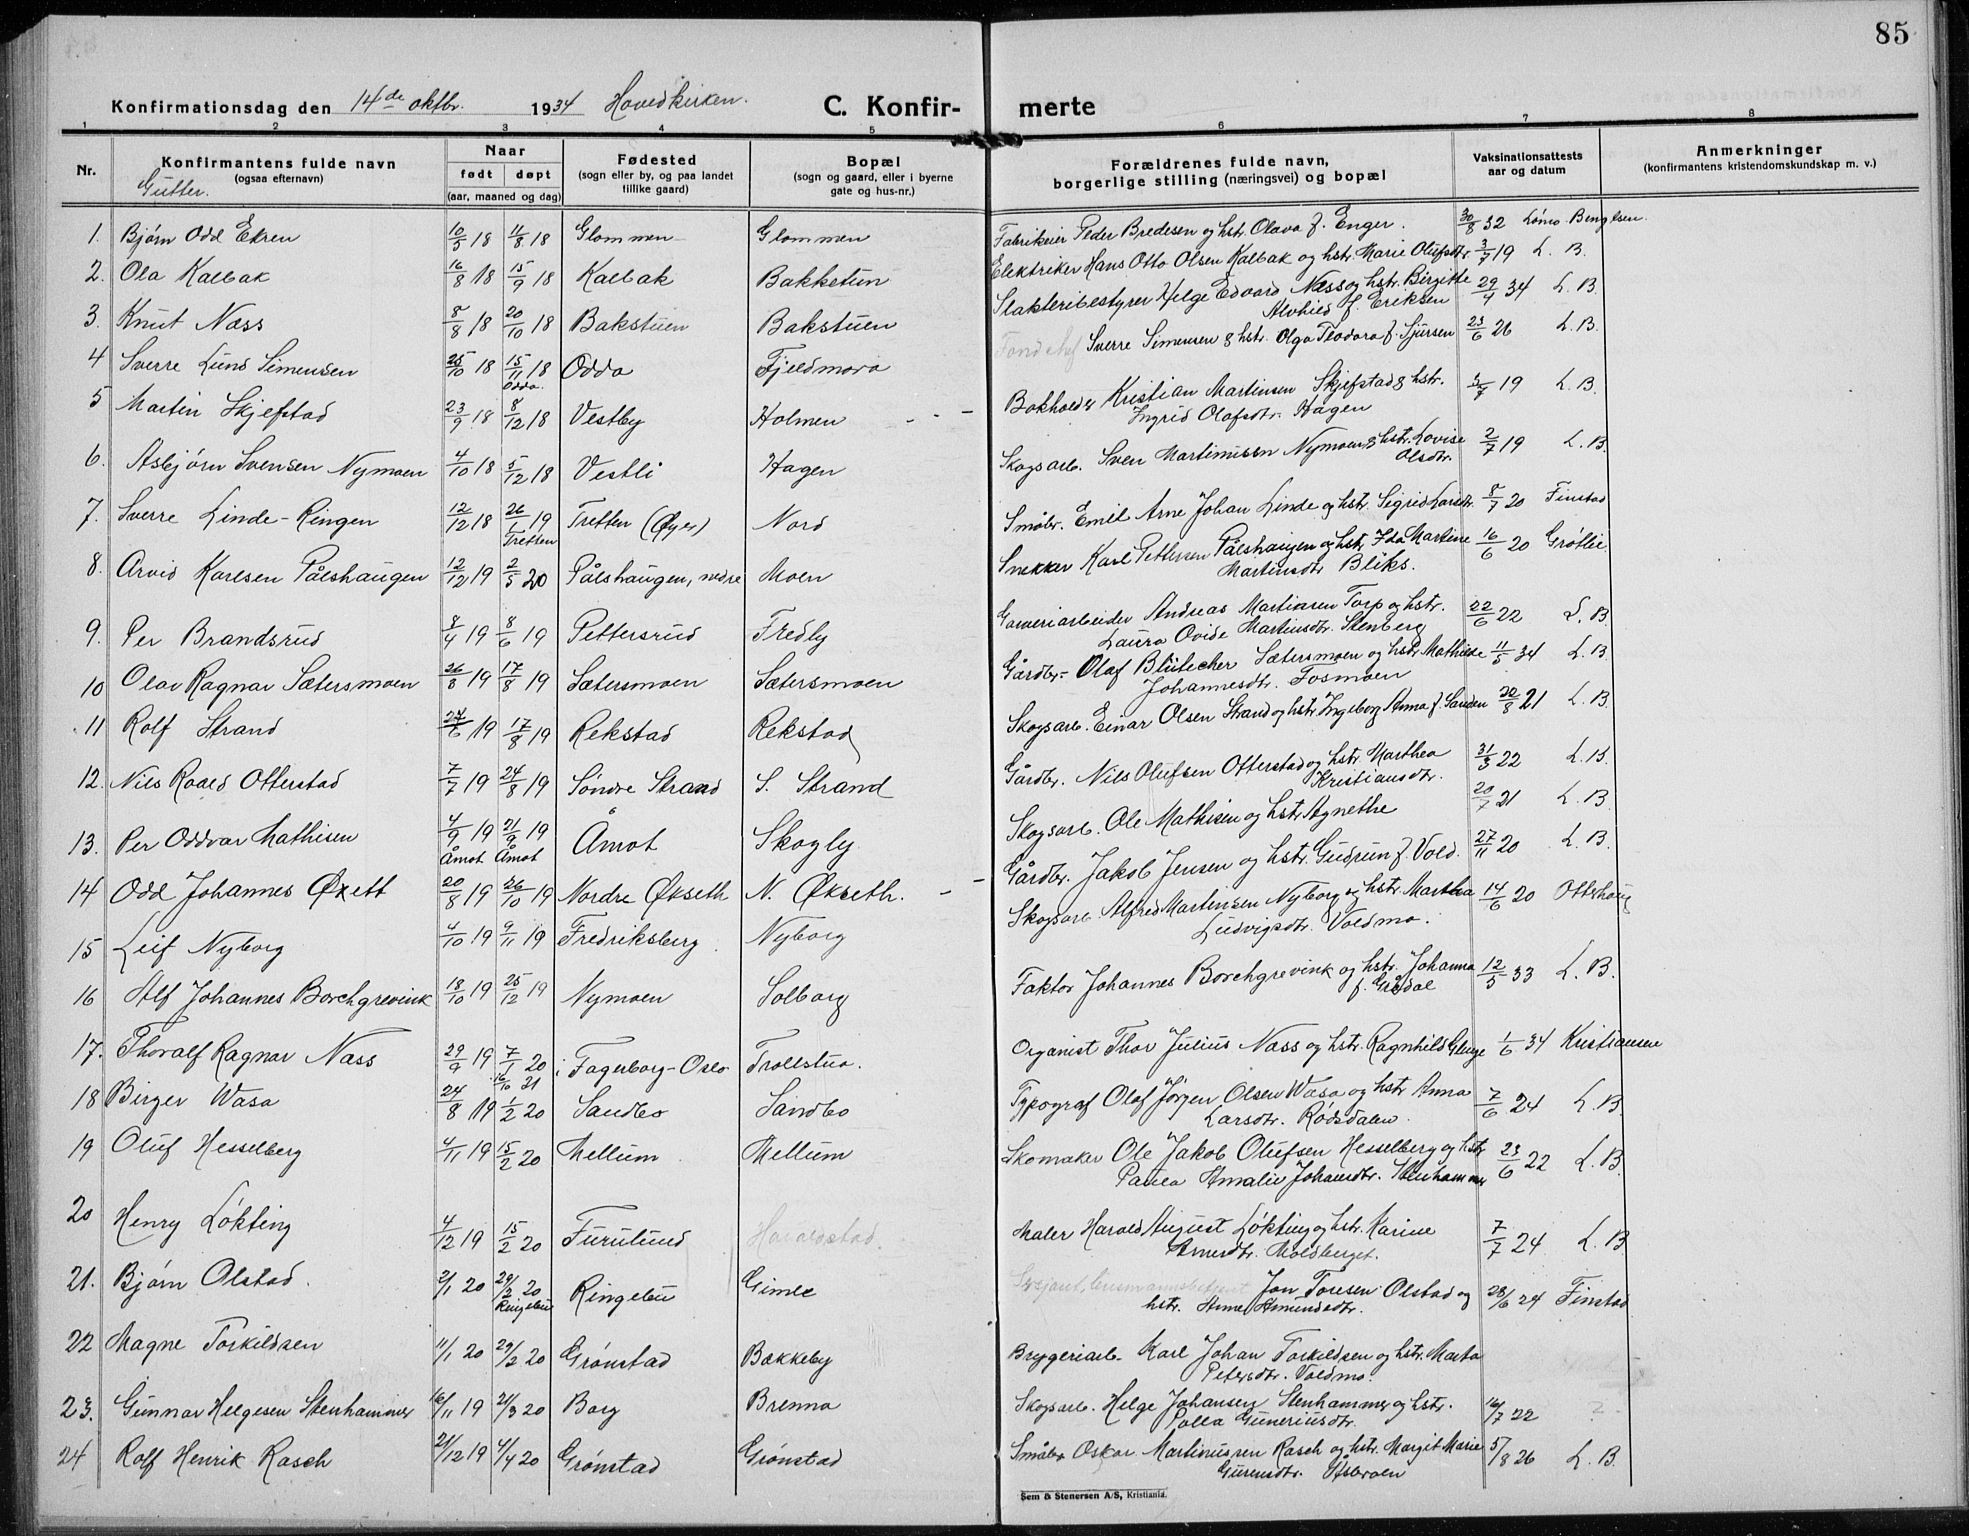 85
Konfirmationsdag den 14de oktbr. 1934 Hovedkirken. C. Konfirmerte
1 2 3 4 5 6 7 8
Nr. Konfirmantens fulde navn (ogsaa efternavn) Naar født døpt (aar, maaned og dag) Fødested (sogn eller by, og paa landet tillike gaard) Bopæl (sogn og gaard, eller i byerne gate og hus-nr.) Forældrenes fulde navn, borgerlige stilling (næringsvei) og bopæl Vaksinationsattests aar og datum Anmerkninger (konfirmantens kristendomskundskap m. v.)
Gutter.
1. Bjørn Odd Ekren 10/5 18 11/8 18 Glommen Glommen Fabrikeier Peder Bredesen og hstr. Olava f. Enger. 30/8 32 Lömo Bengtsen.
2. Ola Kalbak 16/8 18 15/9 18 Kalbak Bakketun Elektriker Hans Otto Olsen Kalbak og hstr. Marie Olufsdtr 3/7 19 L. B.
3. Knut Næss 8/8 18 20/10 18 Bakstuen Bakstuen Slakteribestyrer Helge Edvard Næss og hstr. Birgitte Alvhild f. Eriksen 29/4 34 L. B.
4 Sverre Lund Simensen 25/10 18 15/11 18 Odda. Odda Fjeldmora Sverre Simensen & hstr. Olga Teodora f. Sjursen 23/6 26 L. B.
5 Martin Skjefstad 23/9 18 8/12 18 Vestby Holmen Bokholder Kristian Martinsen Skjefstad & hstr. Ingrid Olafsdtr. Hagen 3/7 19 L. B.
6. Asbjørn Svensen Nymoen 4/10 18 5/12 18 Vestli Hagen Skogsarb. Sven Martinusen Nymoen & hstr. Lovise Olsdtr. 2/7 19 L. B.
7. Sverre Linde-Ringen 12/12 18 26/1 19 Tretten Tretten (Øyer) Nord Småbr. Emil Arne Johan Linde og hstr. Sigrid Larsdtr. 8/7 20 Finstad
8. Arvid Karlsen Pålshaugen 12/12 19 2/5 20 Pålshaugen, nedre Moen Snekker Karl Pettersen Pålshaugen og hstr. Ida Martine Martinsdtr Bliks. 16/6 20 Grøtlie.
9. Per Brandsrud 8/4 19 8/6 19 Pettersrud Fredly Garveriarbeider Andreas Martinsen Torp og hstr. Laura Ovide Martinsdtr. Stenberg 22/6 22 L. B.
10 Olav Ragnar Sætersmoen 26/3 19 17/8 19 Sætersmoen Sætersmoen Gårdbr. Olaf Blütecher Sætersmoen og hstr Mathilde Johannesdtr. Fosmoen 11/5 34 L. B.
11 Rolf Strand 27/6 19 17/8 19 Rekstad Rekstad Skogsarb. Einar Olsen Strand og hstr Ingeborg Anna f. Sanden 20/8 21 L. B.
12. Nils Roald Otterstad 7/7 19 24/8 19 Söndre Strand S. Strand Gårdbr. Nils Olufsen Otterstad og hstr. Marthea Kristiansdtr. 31/3 22 L. B.
13. Per Oddvar Mathisen 4/9 19 Åmot 21/9 19 Åmot Åmot Skogly Skogsarb. Ole Mathisen og hstr Agnethe 20/7 21 L. B.
14 Odd Johannes Øxett 20/8 19 26/10 19 Nordre Økseth N. Økseth. Gårdbr. Jakob Jensen og hstr. Gudrun f. Vold. 27/11 20 L. B.
15 Leif Nyborg 4/10 19 9/11 19 Fredriksberg Nyborg Skogsarb Alfred Martinsen Nyborg og hstr. Martha Ludvigsdtr. Voldmo. 14/6 20 Ottshaug
16 Alf Johannes Borchgrevink 18/10 19 25/12 19 Nymoen Solborg Faktor Johannes Borchgrevink og hstr. Johanna f. Grådal 12/5 33 L. B.
17. Thoralf Ragnar Næss 29/9 19 7/1 20 i Fagerborg-Oslo Trollstua. Organist Thor Julius Næss og hstr. Ragnhild Glenge 1/6 34 Kristiansen
18 Birger Wasa 24/8 19 1/2 20 Sandbo Sandbo Typograf Olaf Jörgen Olsen Wasa og hstr Anna Larsdtr. Rödsdalen. 7/6 24 L. B.
19 Oluf Hesselberg 4/11 19 15/2 20 Mellum Mellum Skomaker Ole Jakob Olufsen Hesselberg og hstr Paula Amalie Johansdtr. Stenhammer 23/6 22 L. B.
20 Henry Løkting 4/12 19 15/2 20 Furulund Haraldstad. Maler Harald August Løkting og hstr. Karine Arnesdtr. Moldberget. 7/7 24 L. B.
21. Bjørn Olstad. 2/1 20 29/2 20 Ringebu Ringebu Gimle Sersjant, lensmannsbetjent Jon Toresen Olstad og hstr. Anne Amundsdtr. 28/6 24 Finstad
22 Magne Torkildsen 11/1 20 29/2 20 Grønstad Bækkeby Bryggeriarb. Karl Johan Torkildsen og hstr. Marta Petersdtr. Voldmo.
23. Gunnar Helgesen Stenhammer 16/11 19 21/3 20 Borg Brenna Skogsarb. Helge Johansen Stenhammer og hstr. Palla Guneriusdtr. 16/7 22 ?
24 Rolf Henrik Rasch 21/12 19 4/4 20 Grønstad Grønstad Småbr Oskar Martinussen Rasch og hstr. Margit Marie Gurensdtr. 5/8 26 L. B.
Sem & Stenersen A/S, Kristiania.